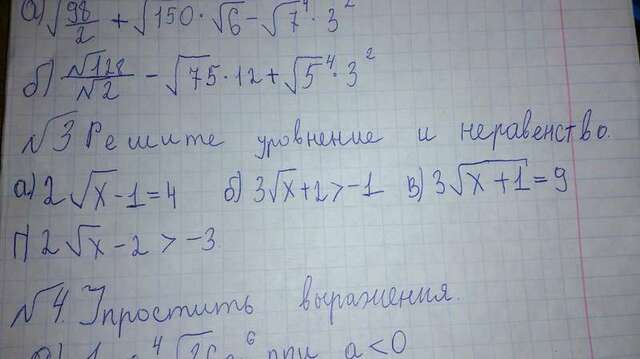 а) √98/2 + √150 · √6 - √7⁴ · 3²
б) √128/√2 - √75 · 12 + √5⁴ · 3²
№3 Решите уровнение и неравенство.
а) 2√x - 1 = 4 б) 3√x + 2 > -1 в) 3√x + 1 = 9
г) 2√x - 2 > -3
№4. Упростить выражения.
при a < 0